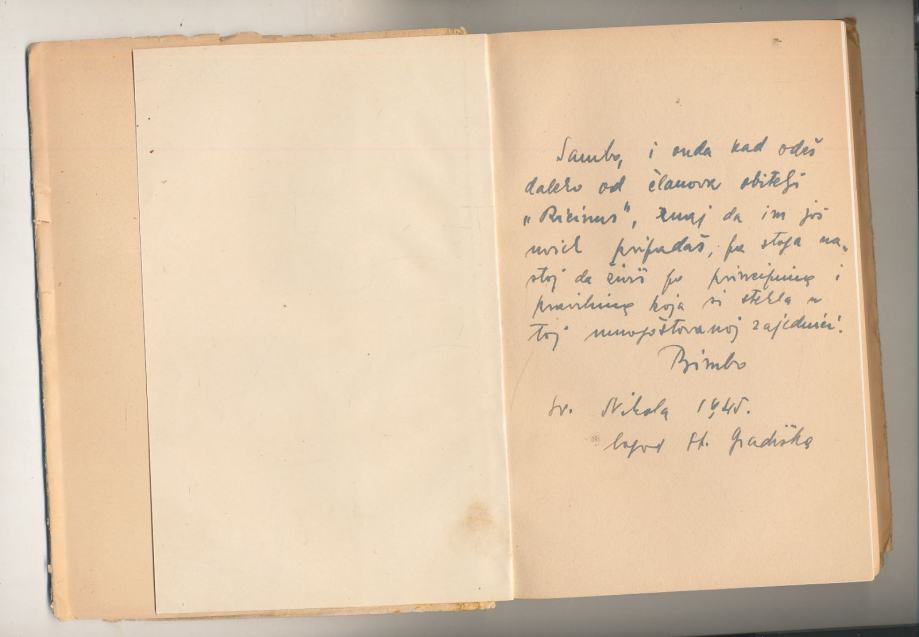 Sambo, i onda kad odeš
daleko od članova obitelji
„Ricinus", znaj da im još
uvick pripadaš, pa stoga na-
stoj da živiš po principima i
pravilima koja si stekla u
toj mnogoštovanoj zajednici!
Bimbo
Sv. Nikola 1945.
logor St. Gradiška